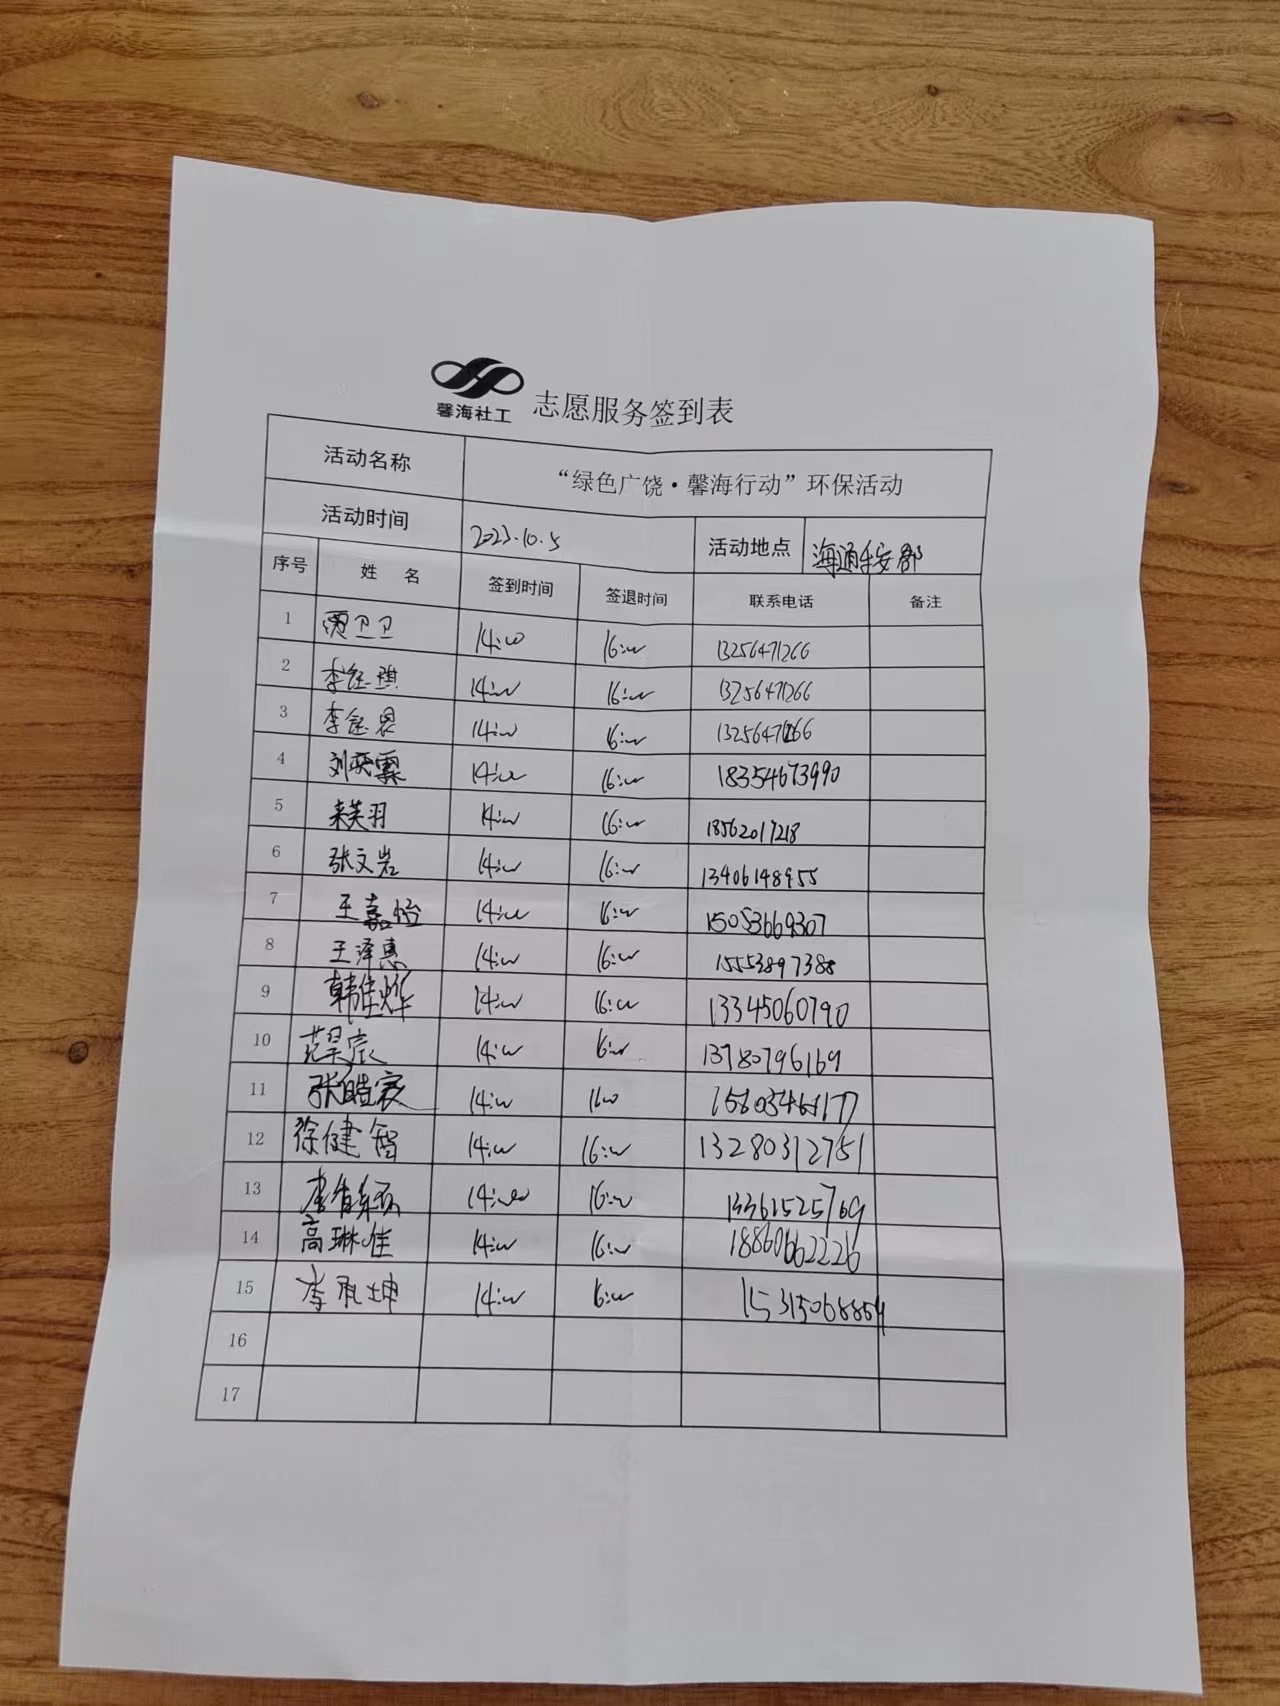 馨海社工 志愿服务签到表
活动名称 “绿色广饶·馨海行动”环保活动
活动时间 2023.10.5 活动地点 海通 郡
序号 姓 名 签到时间 签退时间 联系电话 备注
1 贾卫卫 14:00 16:00 13256471266
2 李钰琪 14:00 16:00 13256471266
3 李钰 14:00 16:00 13256471266
4 刘奕霖 14:00 16:00 18354673990
5 芙羽 14:00 16:00 18562017218
6 张文岩 14:00 16:00 13406148955
7 王嘉怡 14:00 16:00 15053669307
8 王泽惠 14:00 16:00 15553897388
9 韩佳烨 14:00 16:00 13345060790
10 范昊宸 14:00 16:00 13780796169
11 张皓宸 14:00 1600
12 徐健智 14:00 16:00 13280312751
13 14:00 16:00 13361525769
14 高琳佳 14:00 16:00 18860662226
15 李 坤 14:00 16:00
16
17